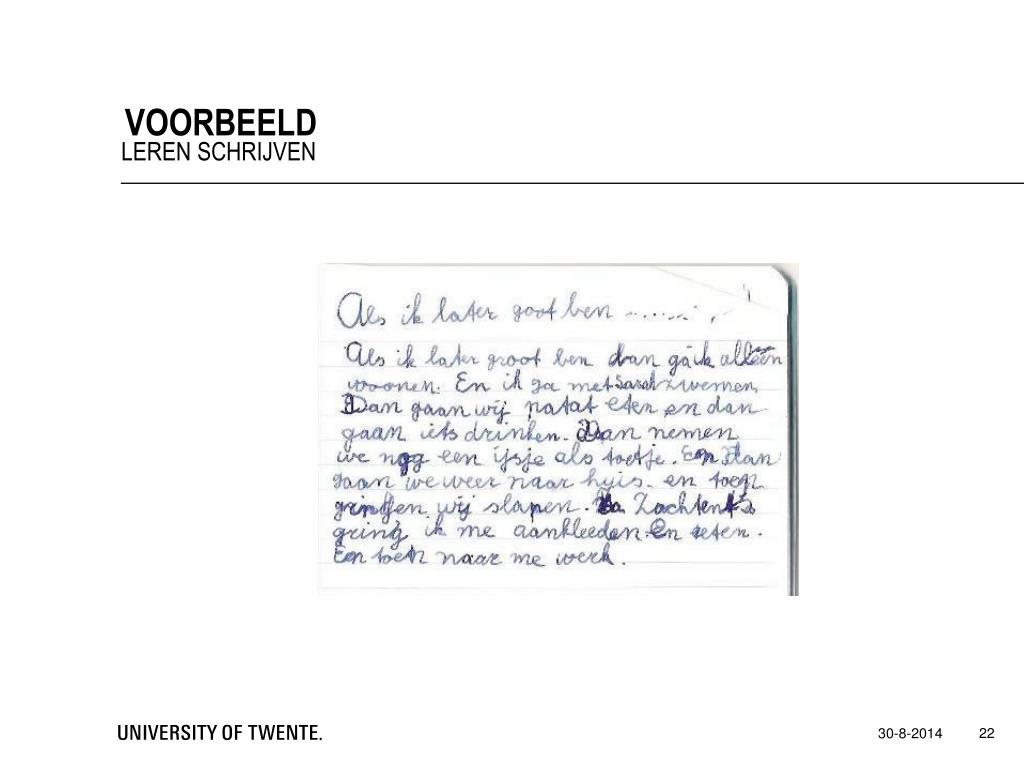 VOORBEELD
LEREN SCHRIJVEN
Als ik later goot ben ......
Als ik later groot ben dan ga ik alleen
woonen. En ik ga met Sarah zwemen,
Dan gaan wij patat eten en dan
gaan iets drinken. Dan nemen
we nog een ijsje als toetje. En dan
gaan we weer naar huis. en toen
gringen wij slapen. Zachtent's
gring ik me aankleeden En eeten.
En toen naar me werk.
UNIVERSITY OF TWENTE.
30-8-2014
22